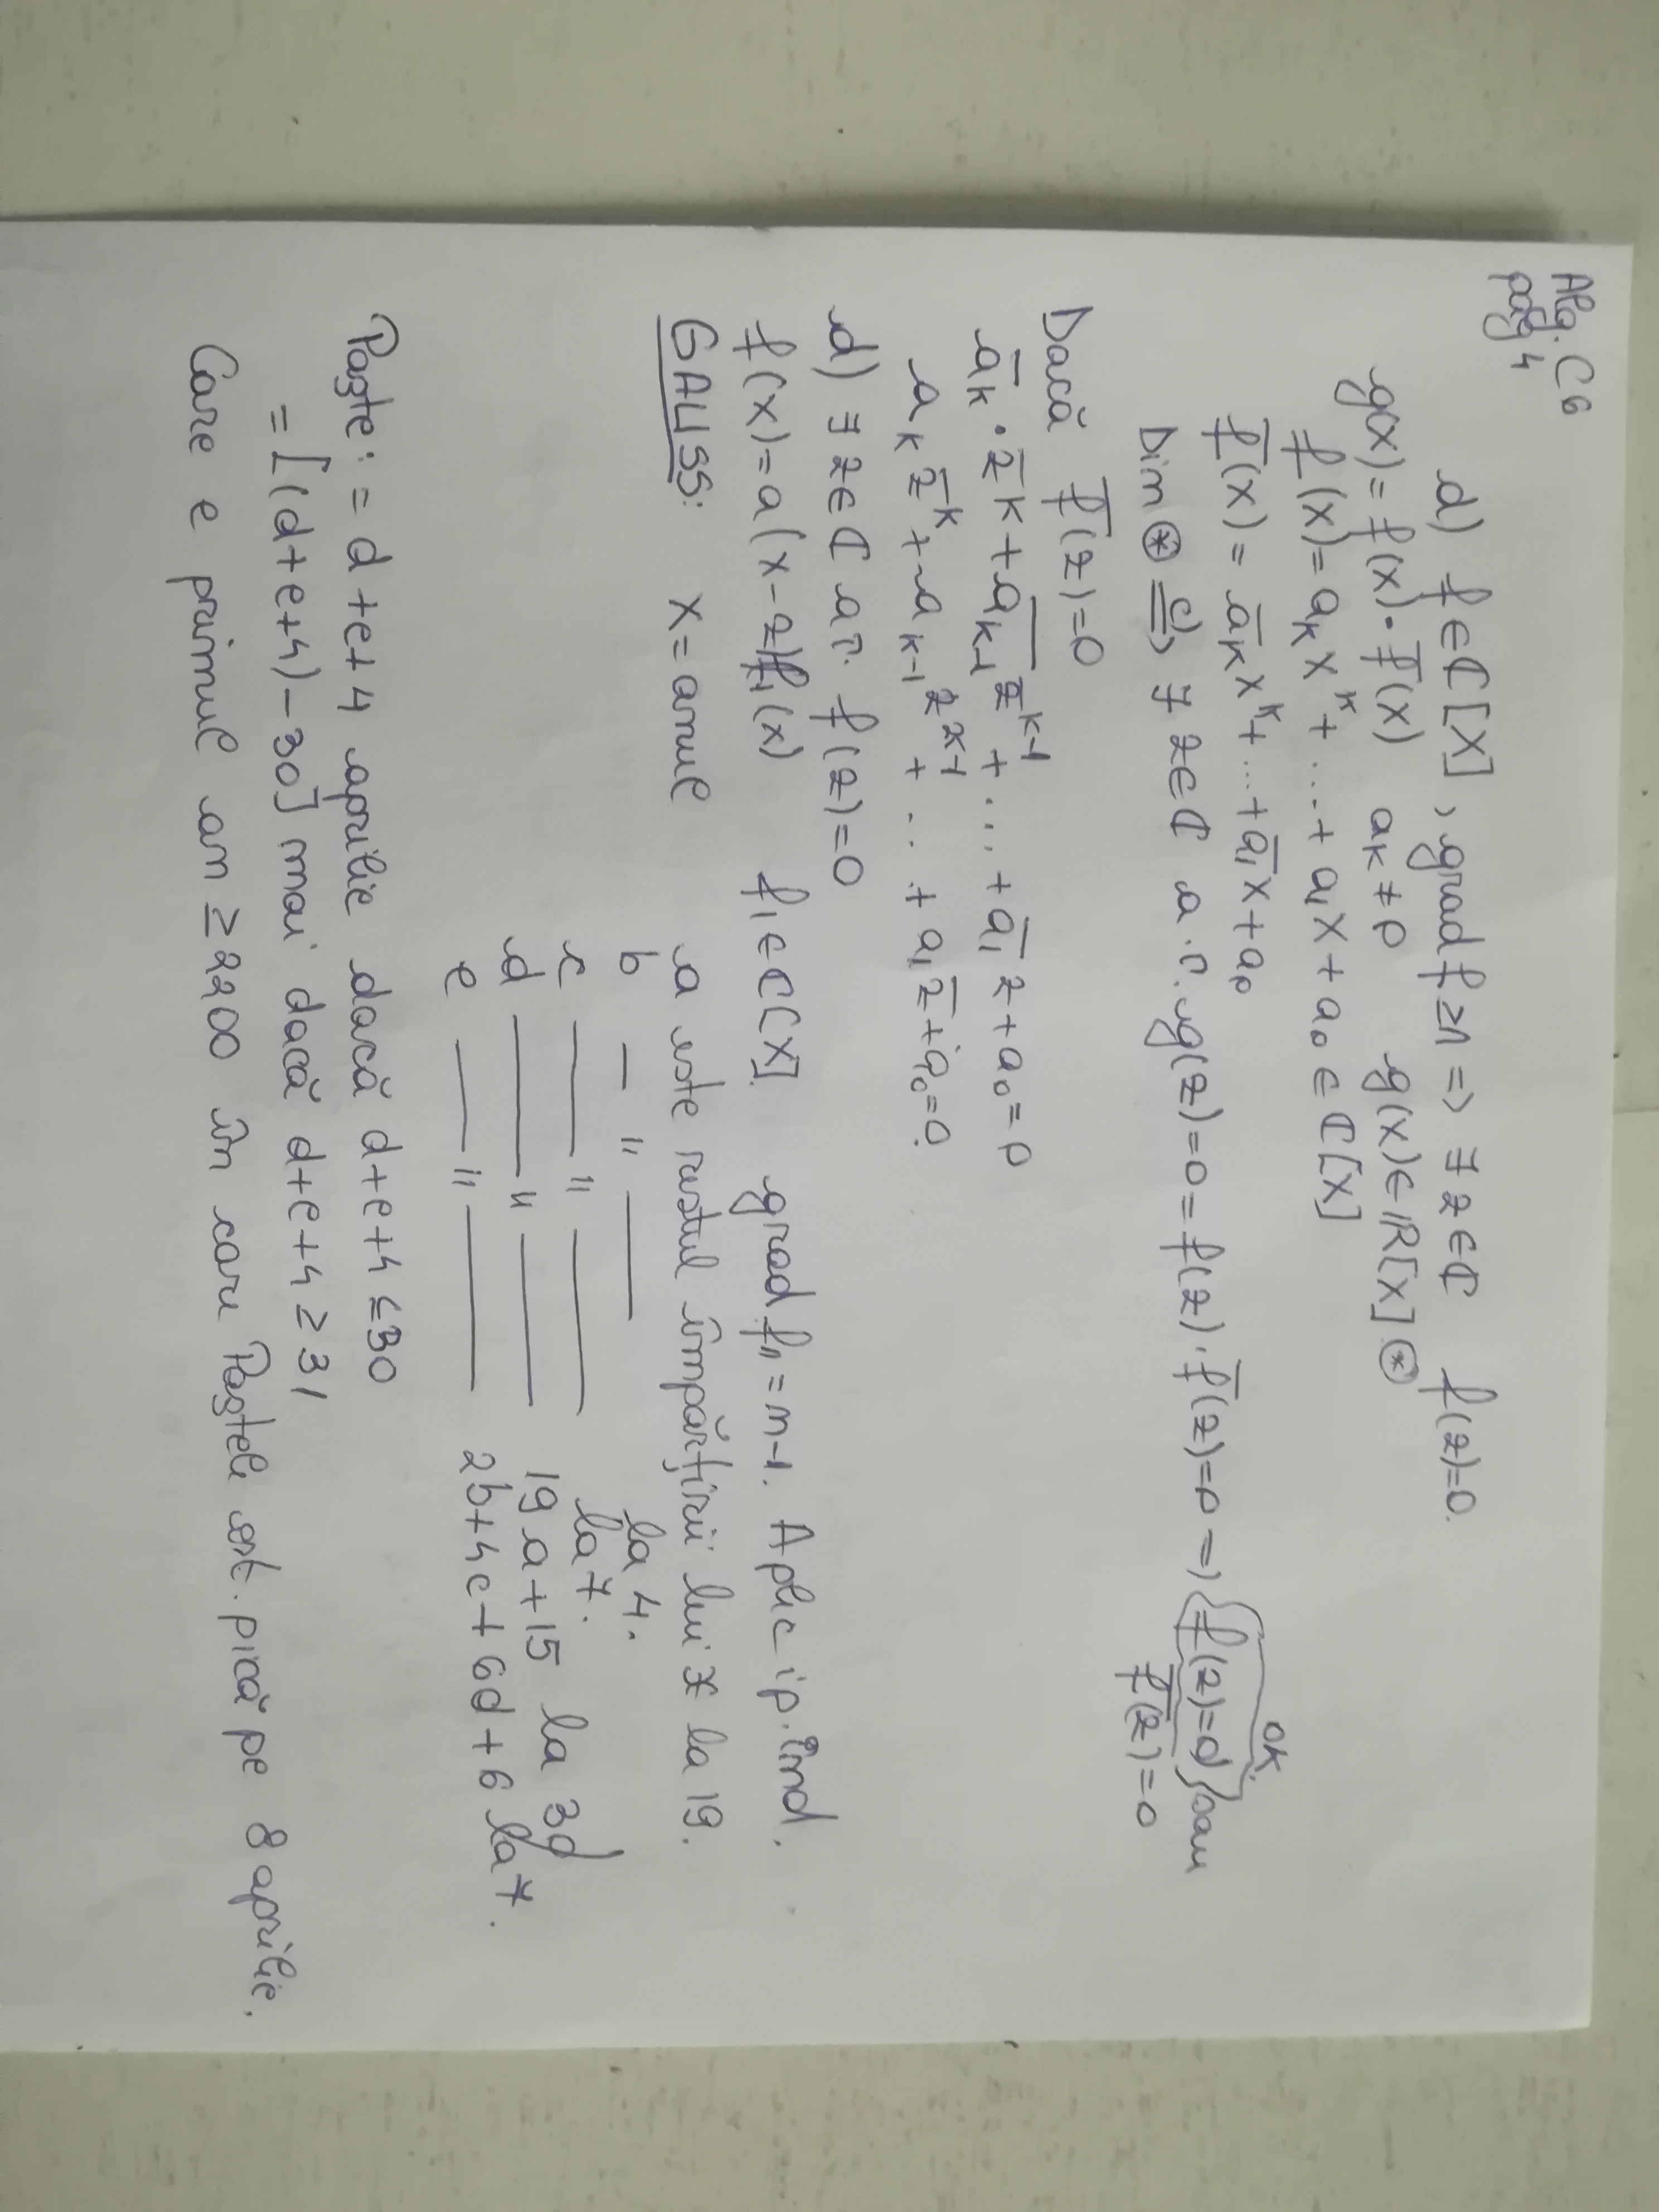 Alg. C6
pag 4
d) f∈ℂ[X], grad f≥1 => ∃ z∈ℂ f(z)=0.
g(x)=f(x)·f̄(x) aₖ≠0 g(x)∈ℝ[X] ⊛
f(x)=aₖxᵏ+...+a₁x+a₀∈ℂ[X]
f̄(x)=āₖxᵏ+...+ā₁x+a₀
Din ⊛ =c)=> ∃ z∈ℂ a.î. g(z)=0=f(z)·f̄(z)=0 => f(z)=0 sau ok.
f̄(z)=0
Dacă f̄(z)=0
āₖ·z̄ᵏ+āₖ₋₁z̄ᵏ⁻¹+...+ā₁z+a₀=0
aₖz̄ᵏ+aₖ₋₁z̄ᵏ⁻¹+...+a₁z̄+a₀=0.
d) ∃ z∈ℂ aî. f(z)=0
f(x)=a(x-z)f₁(x) f₁∈ℂ[X] grad f₁=n-1. Aplic ip. ind.
GAUSS: x=anul a este restul împărțirii lui x la 19.
b — " —— la 4.
c —— " —— la 7.
d —— " —— 19a+15 la 3d
e —— " —— 2b+4c+6d+6 la 7.
Paște: = d+e+4 aprilie dacă d+e+4≤30
= [(d+e+4)-30] mai dacă d+e+4≥31
Care e primul an ≥2200 în care Paștele ort. pică pe 8 aprilie.